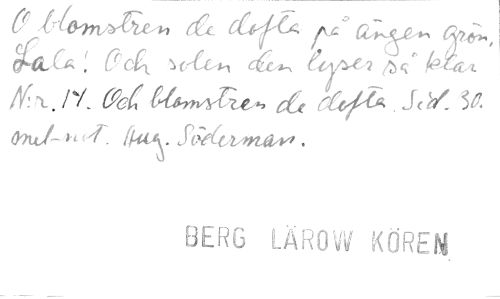 O blomstren de dofta på ängen grön,
Lala! Och solen den lyser så klar
N:r. 14. Och blomstren de dofta. Sid. 30.
mel-not. Aug. Söderman.
BERG LÄROW KÖREN